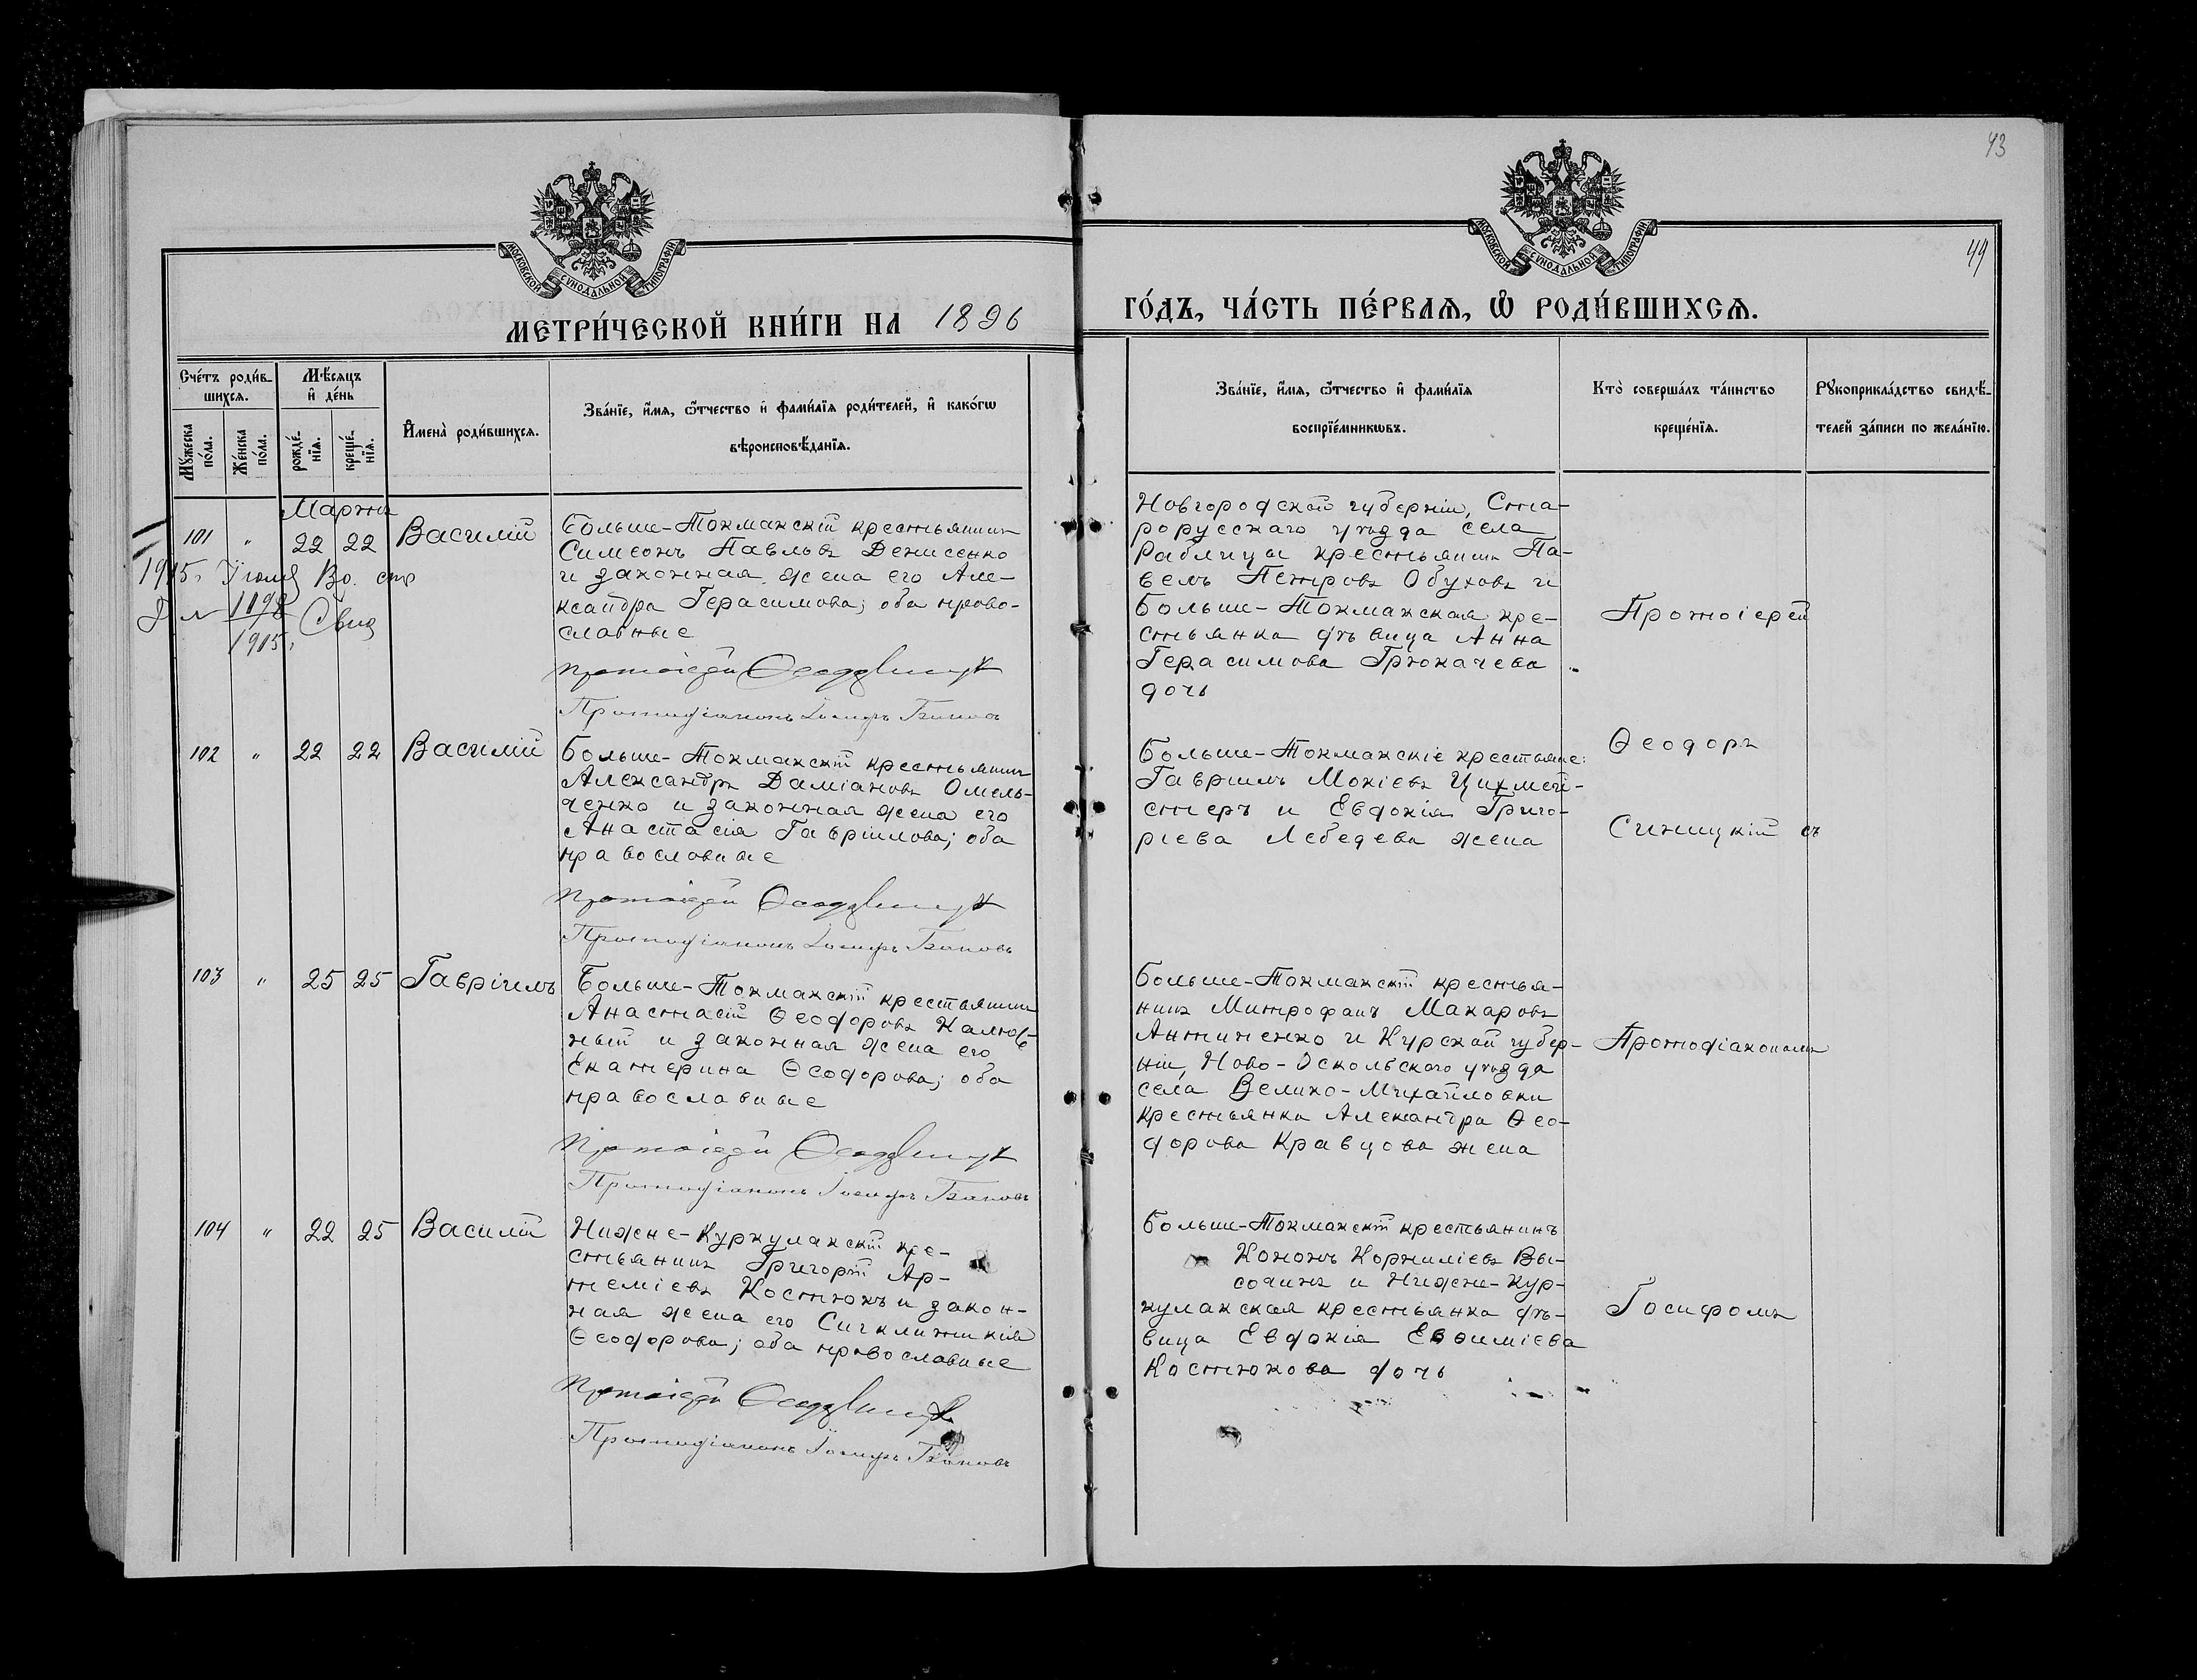 43
МОСКОВСКОЙ СѴНОДАЛЬНОЙ ТИПОГРАФІИ
МОСКОВСКОЙ СѴНОДАЛЬНОЙ ТИПОГРАФІИ
МЕТРИ́ЧЕСКОЙ КНИ́ГИ НА 1896
ГО́ДЪ, ЧА́СТЬ ПЕ́РВАѦ, Ѡ҆ РОДИ́ВШИХСѦ.
49
Сче́тъ роди́в-
шихсѧ.
Мѣ́сѧцъ
и҆ де́нь
Мꙋ́жеска
по́ла.
Же́нска
по́ла.
рожде́-
нїѧ.
креще́-
нїѧ.
И҆мена̀ роди́вшихсѧ.
Зва́нїе, и҆́мѧ, ѻ҆́тчество и҆ фами́лїѧ роди́телей, и҆ како́гѡ
вѣроисповѣ́данїѧ.
Зва́нїе, и҆́мѧ, ѻ҆́тчество и҆ фами́лїѧ
воспрїе́мникѡвъ.
Кто̀ соверша́лъ та́инство
креще́нїѧ.
Рꙋкоприкла́дство свидѣ́-
телей за́писи по жела́нїю.
Марта
101 " 22 22 Василій
Больше-Токмакскій крестьянинъ
Симеонъ Павловъ Денисенко
и законная жена его Але-
ксандра Герасимова; оба право-
славные
1915. Іюля
1098
1915.
Протоіерей Ѳеодоръ Синицкій
Протодіаконъ Іосифъ Баковъ
Новгородской губерніи, Ста-
рорусскаго уѣзда села
Раблицы крестьянинъ Па-
велъ Петровъ Обуховъ и
Больше-Токмакская кре-
стьянка дѣвица Анна
Герасимова Грюкачева
дочь
Протоіерей
102 " 22 22 Василій
Больше-Токмакскій крестьянинъ
Александръ Даміановъ Омель-
ченко и законная жена его
Анастасія Гавріилова; оба
православные
Протоіерей Ѳеодоръ Синицкій
Протодіаконъ Іосифъ Баковъ
Больше-Токмакскіе крестьяне:
Гавріилъ Мокіевъ Цихмей-
стеръ и Евдокія Григо-
ріева Лебедева жена
Ѳеодоръ
Синицкій съ
103 " 25 25 Гавріилъ
Больше-Токмакскій крестьянинъ
Анастасій Ѳеодоровъ Калюж-
ный и законная жена его
Екатерина Ѳеодорова; оба
православные
Протоіерей Ѳеодоръ Синицкій
Протодіаконъ Іосифъ Баковъ
Больше-Токмакскій крестья-
нинъ Митрофанъ Макаровъ
Антипенко и Курской губер-
ніи, Ново-Оскольскаго уѣзда
села Велико-Михайловки
крестьянка Александра Ѳео-
дорова Кравцова жена
Протодіакономъ
104 " 22 25 Василій
Нижне-Куркулакскій кре-
стьянинъ Григорій Ар-
теміевъ Костюкъ и закон-
ная жена его Сигклитикія
Ѳеодорова; оба православные
Протоіерей Ѳеодоръ Синицкій
Протодіаконъ Іосифъ Баковъ
Больше-Токмакскій крестьянинъ
Кононъ Корниліевъ Вы-
сочинъ и Нижне-Кур-
кулакская крестьянка дѣ-
вица Евдокія Евѳиміева
Костюкова дочь
Іосифомъ